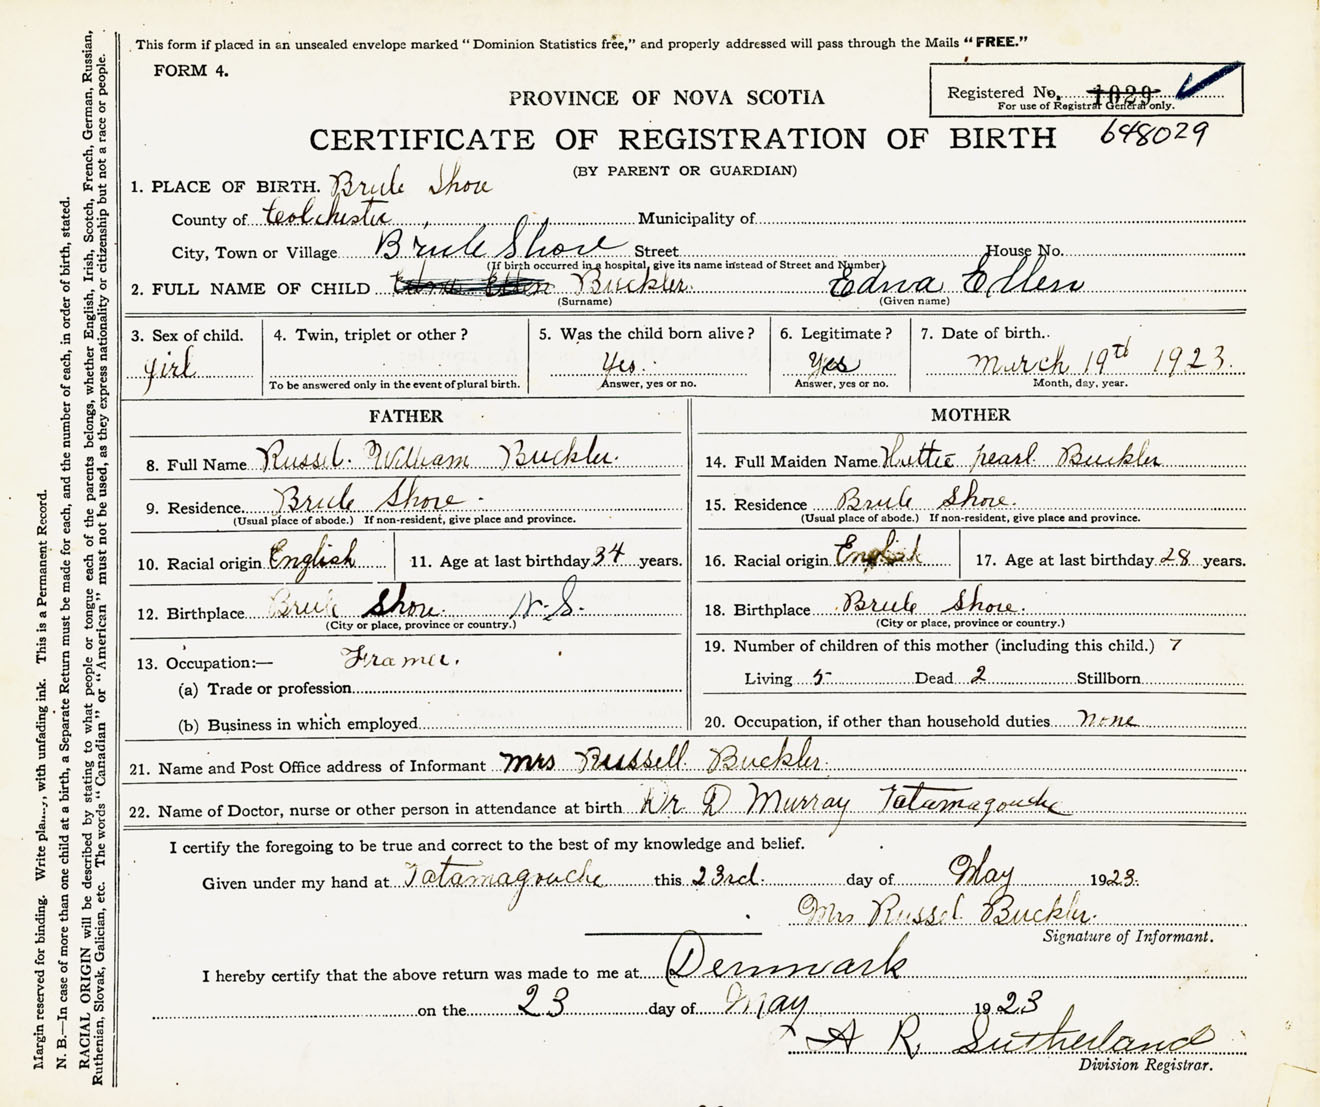 This form if placed in an unsealed envelope marked “Dominion Statistics free,” and properly addressed will pass through the Mails “FREE.”
FORM 4.
Registered No. 1029
For use of Registrar General only.
PROVINCE OF NOVA SCOTIA
CERTIFICATE OF REGISTRATION OF BIRTH 648029
(BY PARENT OR GUARDIAN)
1. PLACE OF BIRTH. Brule Shore
County of Colchester Municipality of
City, Town or Village Brule Shore Street House No.
(If birth occurred in a hospital, give its name instead of Street and Number)
2. FULL NAME OF CHILD Edna Ellen Buckler. Edna Ellen
(Surname) (Given name)
3. Sex of child. 4. Twin, triplet or other? 5. Was the child born alive? 6. Legitimate? 7. Date of birth.
girl Yes. Yes March 19th 1923.
To be answered only in the event of plural birth. Answer, yes or no. Answer, yes or no. Month, day, year.
FATHER
8. Full Name Russel. William Buckler.
9. Residence Brule Shore.
(Usual place of abode.) If non-resident, give place and province.
10. Racial origin English 11. Age at last birthday 34 years.
12. Birthplace Brule Shore. N.S.
(City or place, province or country.)
13. Occupation:— Framer.
(a) Trade or profession
(b) Business in which employed
MOTHER
14. Full Maiden Name Hattie pearl Buckler
15. Residence Brule Shore.
(Usual place of abode.) If non-resident, give place and province.
16. Racial origin English 17. Age at last birthday 28 years.
18. Birthplace Brule Shore.
(City or place, province or country.)
19. Number of children of this mother (including this child.) 7
Living 5 Dead 2 Stillborn
20. Occupation, if other than household duties none
21. Name and Post Office address of Informant Mrs Russell Buckler.
22. Name of Doctor, nurse or other person in attendance at birth Dr D Murray Tatamagouche
I certify the foregoing to be true and correct to the best of my knowledge and belief.
Given under my hand at Tatamagouche this 23rd. day of May 1923.
Mrs Russel Buckler.
Signature of Informant.
I hereby certify that the above return was made to me at Denmark
on the 23 day of May 1923
A R Sutherland
Division Registrar.
Margin reserved for binding. Write with unfading ink. This is a Permanent Record.
N. B.—In case of more than one child at a birth, a Separate Return must be made for each, and the number of each, in order of birth, stated.
RACIAL ORIGIN will be described by stating to what people or tongue each of the parents belongs, whether English, Irish, Scotch, French, German, Russian,
Ruthenian, Slovak, Galician, etc. The words “Canadian” or “American” must not be used, as they express nationality or citizenship but not a race or people.